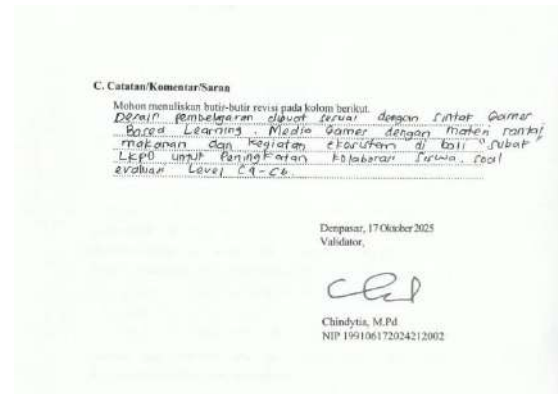 C. Catatan/Komentar/Saran
Mohon menuliskan butir-butir revisi pada kolom berikut.
Desain pembelajaran dibuat sesuai dengan sintak Games
Based Learning. Media Games dengan materi rantai
makanan dan kegiatan ekosistem di bali "subak"
LKPD untuk Peningkatan kolaborasi siswa. soal
evaluasi Level C4-C6.
Denpasar, 17 Oktober 2025
Validator,
Chindytia, M.Pd
NIP 199106172024212002